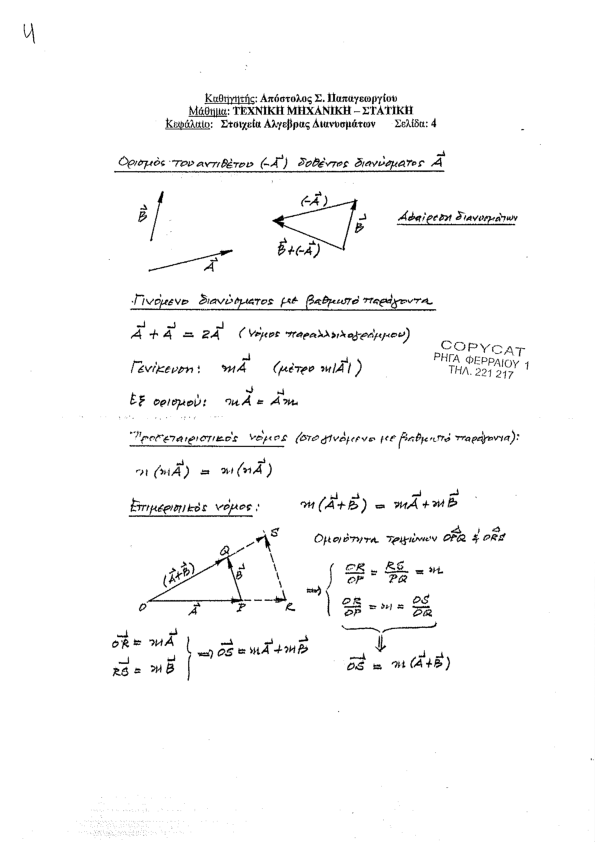 4
Καθηγητής: Απόστολος Σ. Παπαγεωργίου
Μάθημα: ΤΕΧΝΙΚΗ ΜΗΧΑΝΙΚΗ – ΣΤΑΤΙΚΗ
Κεφάλαιο: Στοιχεία Αλγεβρας Διανυσμάτων Σελίδα: 4
Ορισμός του αντιθέτου (-A⃗) δοθέντος διανύσματος A⃗
B⃗
A⃗
(-A⃗)
B⃗
B⃗+(-A⃗)
Αφαίρεση διανυσμάτων
Γινόμενο διανύσματος με βαθμωτό παράγοντα
A⃗ + A⃗ = 2A⃗ (νόμος παραλληλογράμμου)
Γενίκευση: mA⃗ (μέτρο m|A⃗|)
COPYCAT
ΡΗΓΑ ΦΕΡΡΑΙΟΥ 1
ΤΗΛ. 221 217
Εξ ορισμού: mA⃗ = A⃗m
Προσεταιριστικός νόμος (στο γινόμενο με βαθμωτό παράγοντα):
n(mA⃗) = m(nA⃗)
Επιμεριστικός νόμος: m(A⃗+B⃗) = mA⃗+mB⃗
S
Q
(A⃗+B⃗)
B⃗
O
A⃗
P
R
Ομοιότητα τριγώνων OPQ & ORS
⟹ { OR/OP = RS/PQ = m
OR/OP = m = OS/OQ
⇓
OS⃗ = m(A⃗+B⃗)
OR⃗ = mA⃗
RS⃗ = mB⃗
} ⟹ OS⃗ = mA⃗+mB⃗